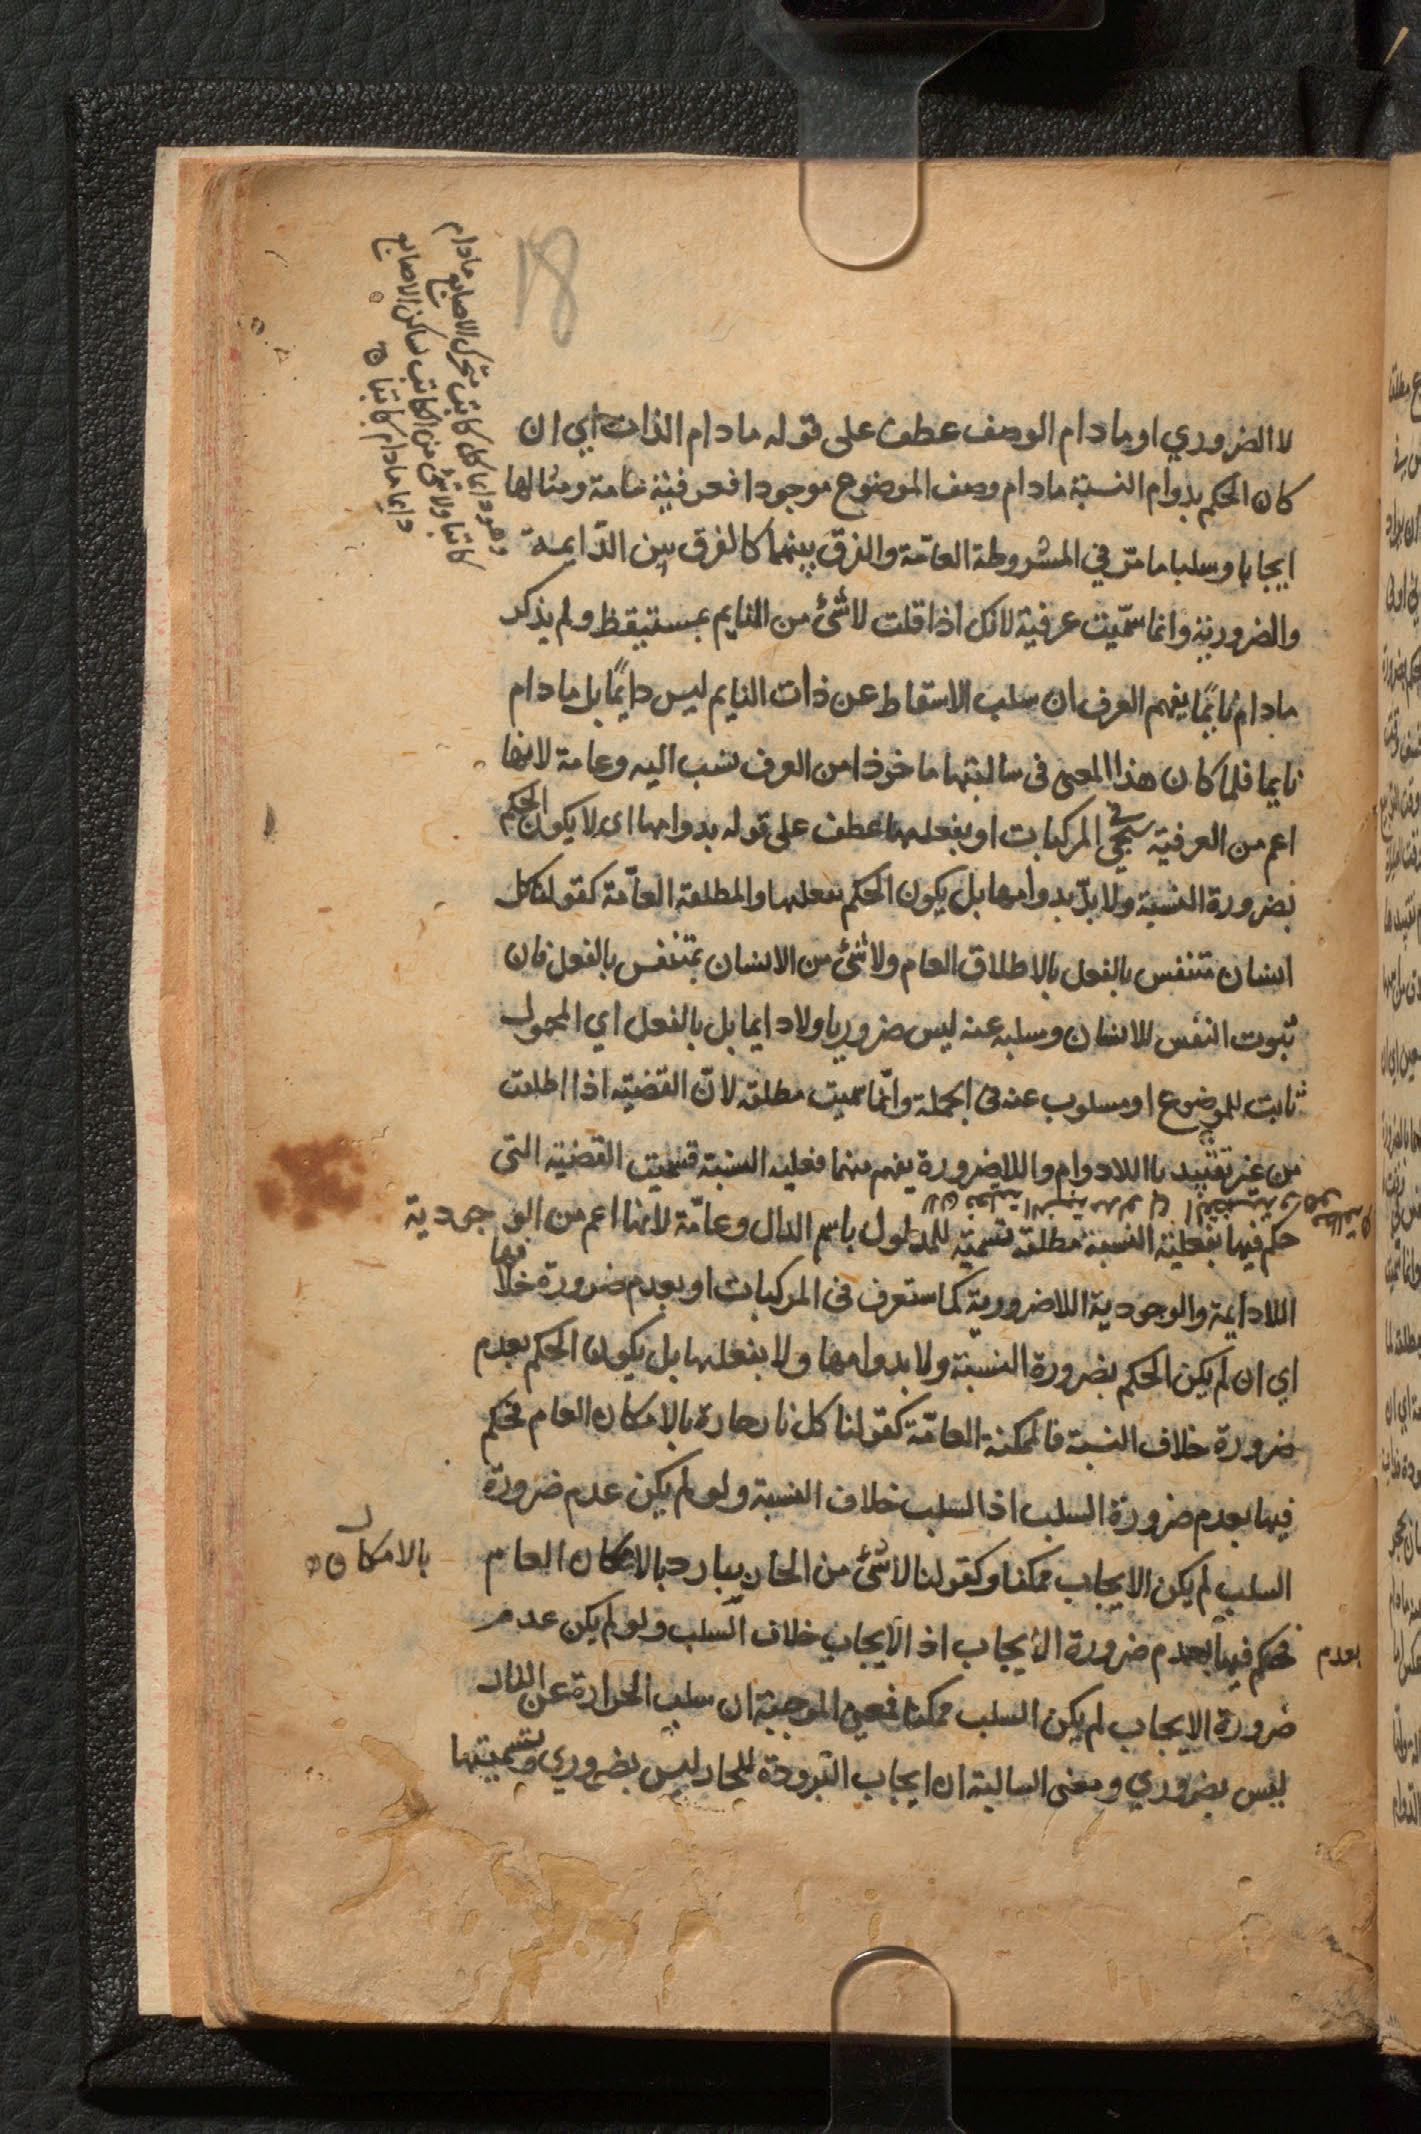 18
وهو دايما كل كاتب متحرك الاصابع مادام
كاتبا ولا شئ من الكاتب ساكن الاصابع
دايما مادام كاتبا
لا الضروري او مادام الوصف عطف على قوله مادام الذات اي ان
كان الحكم بدوام النسبة مادام وصف الموضوع موجودا فعرفية عامة ومثالها
ايجابا وسلبا ما مرّ في المشروطة العامّة والفرق بينهما كالفرق بين الدّايمة
والضرورية وانما سمّيت عرفية لانك اذا قلت لا شئ من النايم بمستيقظ ولم يذكر
مادام نايمًا يفهم العرف ان سلب الاستقاط عن ذات النايم ليس دايمًا بل مادام
نايما فلما كان هذا المعنى في سالبتها ماخوذا من العرف نسب اليه وعامة لانها
اعم من العرفية ستجي في المركبات او بفعلها عطف على قوله بدوامها اى لا يكون الحكم
بضرورة النسبة ولا بدّ بدوامها بل يكون الحكم بفعلها والمطلقة العامّة كقولنا كل
انسان متنفس بالفعل بالاطلاق العام ولا شئ من الانسان بمتنفس بالفعل فان
ثبوت النفس للانسان وسلبه عنه ليس ضروريا ولا دايما بل بالفعل اي المحمول
ثابت للموضوع او مسلوب عنه في الجملة وانّما سميت مطلقه لانّ القضيّه اذا اطلقت
من غير تقييد باللادوام واللاضرورة يفهم منها فعلية النسبة فسميت القضيه التى
حكم فيها بفعلية النسبة مطلقه تسمية للمدلول باسم الدال وعامّة لانها اعم من الوجودية
اللادايمة والوجودية اللاضرورية كما ستعرف في المركبات او بعدم ضرورة خلافها
اي ان لم يكن الحكم بضرورة النسبة ولا بدوامها ولا بفعلها بل يكون الحكم بعدم
ضرورة خلاف النسبة فالممكنة العامّة كقولنا كل نار حارة بالامكان العام فحكم
فيها بعدم ضرورة السلب اذ السلب خلاف النسبة ولو لم يكن عدم ضرورة
السلب لم يكن الايجاب ممكنا وكقولنا لا شئ من الحار ببارد بالامكان العام
بالامكان
فحكم فيها بعدم ضرورة الايجاب اذ الايجاب خلاف السلب ولو لم يكن عدم
بعدم
ضرورة الايجاب لم يكن السلب ممكنا فمعنى الموجبة ان سلب الحرارة عن النار
ليس بضروري ومعنى السالبة ان ايجاب البرودة للحار ليس بضروري وتسميتها